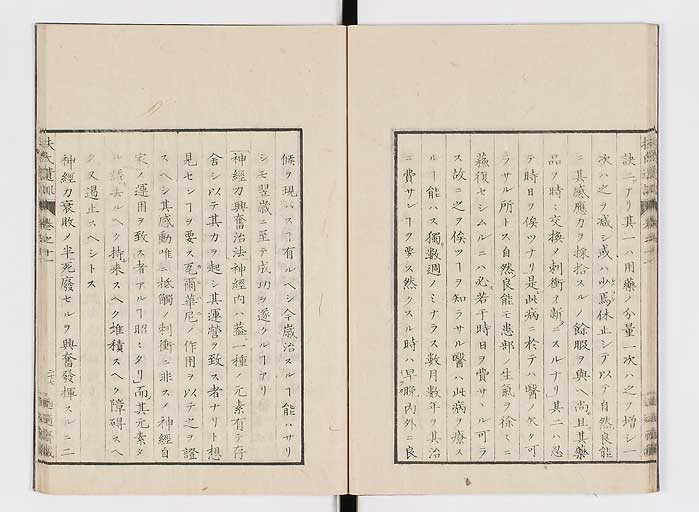 訣二アリ其一ハ用藥ノ分量一次ハ之ヲ增シ一
次ハ之ヲ減シ或ハ少焉休止シテ以テ自然良能
ニ其感應力ヲ採拾スルノ餘暇ヲ與ヘ尚且其藥
品ヲ時ミ交換ノ刺衝ヲ新ニスルナリ其二ハ忍
テ時日ヲ俟ツナリ是此病ニ於テハ醫ノ欠ク可
ラサル所トス自然良能モ患部ノ生氣ヲ徐ミニ
蘓復セシムルニハ必若干時日ヲ費サヽル可ラ
ス故ニ之ヲ俟ツヿヲ知ラサル醫ハ此病ヲ療ス
ルヿ能ハス獨數週ノミナラス數月數年ヲ其治
ニ費サンヿヲ要ス然クスル時ハ早晩內外ニ良
候ヲ現ハスヿ有ルヘシ今歲治スルヿ能ハサリ
シモ翌歲ニ至テ成功ヲ遂クルヿアリ
神經力興奮治法神經內ハ葢一種ノ元素有テ存
舍シ以テ其力ヲ起シ其運營ヲ致ス者ナリト想
見セシヿヲ要ス瓦爾華尼ノ作用ヲ以テ之ヲ證
スヘシ其感動唯ニ抵觸ノ刺衝ニ非ス〆神經自
家ノ運用ヲ致ス者アルヿ昭ミタリ而其元素タ
ル誘夫ルヘク持来スヘク堆積スヘク障碍スヘ
ク又遏止スヘシトス
神經力衰敗〆半死廢セルヲ興奮發揮スルニ二
扶氏遺訓
卷之十一